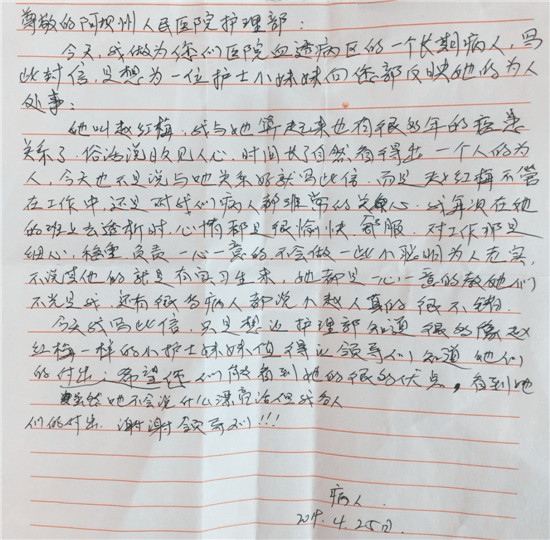 尊敬的阿坝州人民医院护理部：
今天，我做为您们医院血透病区的一个长期病人，写
此封信，只想为一位护士小妹妹向您部反映她的为人
处事：
她叫赵红梅，我与她算起来也有很多年的医患
关系了，俗话说日久见人心，时间长了自然看得出一个人的为
人，今天也不是说与她关系好就写此信，而是赵红梅不管
在工作中，还是对我们病人都非常的关心，我每次在她
的班上去透析时，心情都是很愉快舒服，对工作那是
细心，稳重，负责一心一意的，不会做一些小聪明为人老实，
不说其他的就是有实习生来，她都是一心一意的教她们
不光是我，还有很多病人都说小赵人真的很不错。
今天我写此信，只是想让护理部知道很多像赵
红梅一样的小护士妹妹值得让领导们知道她们
的付出；希望你们能看到她的很多优点，看到她
虽然她不会说什么漂亮话但我看人
们的付出 谢谢领导们!!!
病人
2019.4.25日